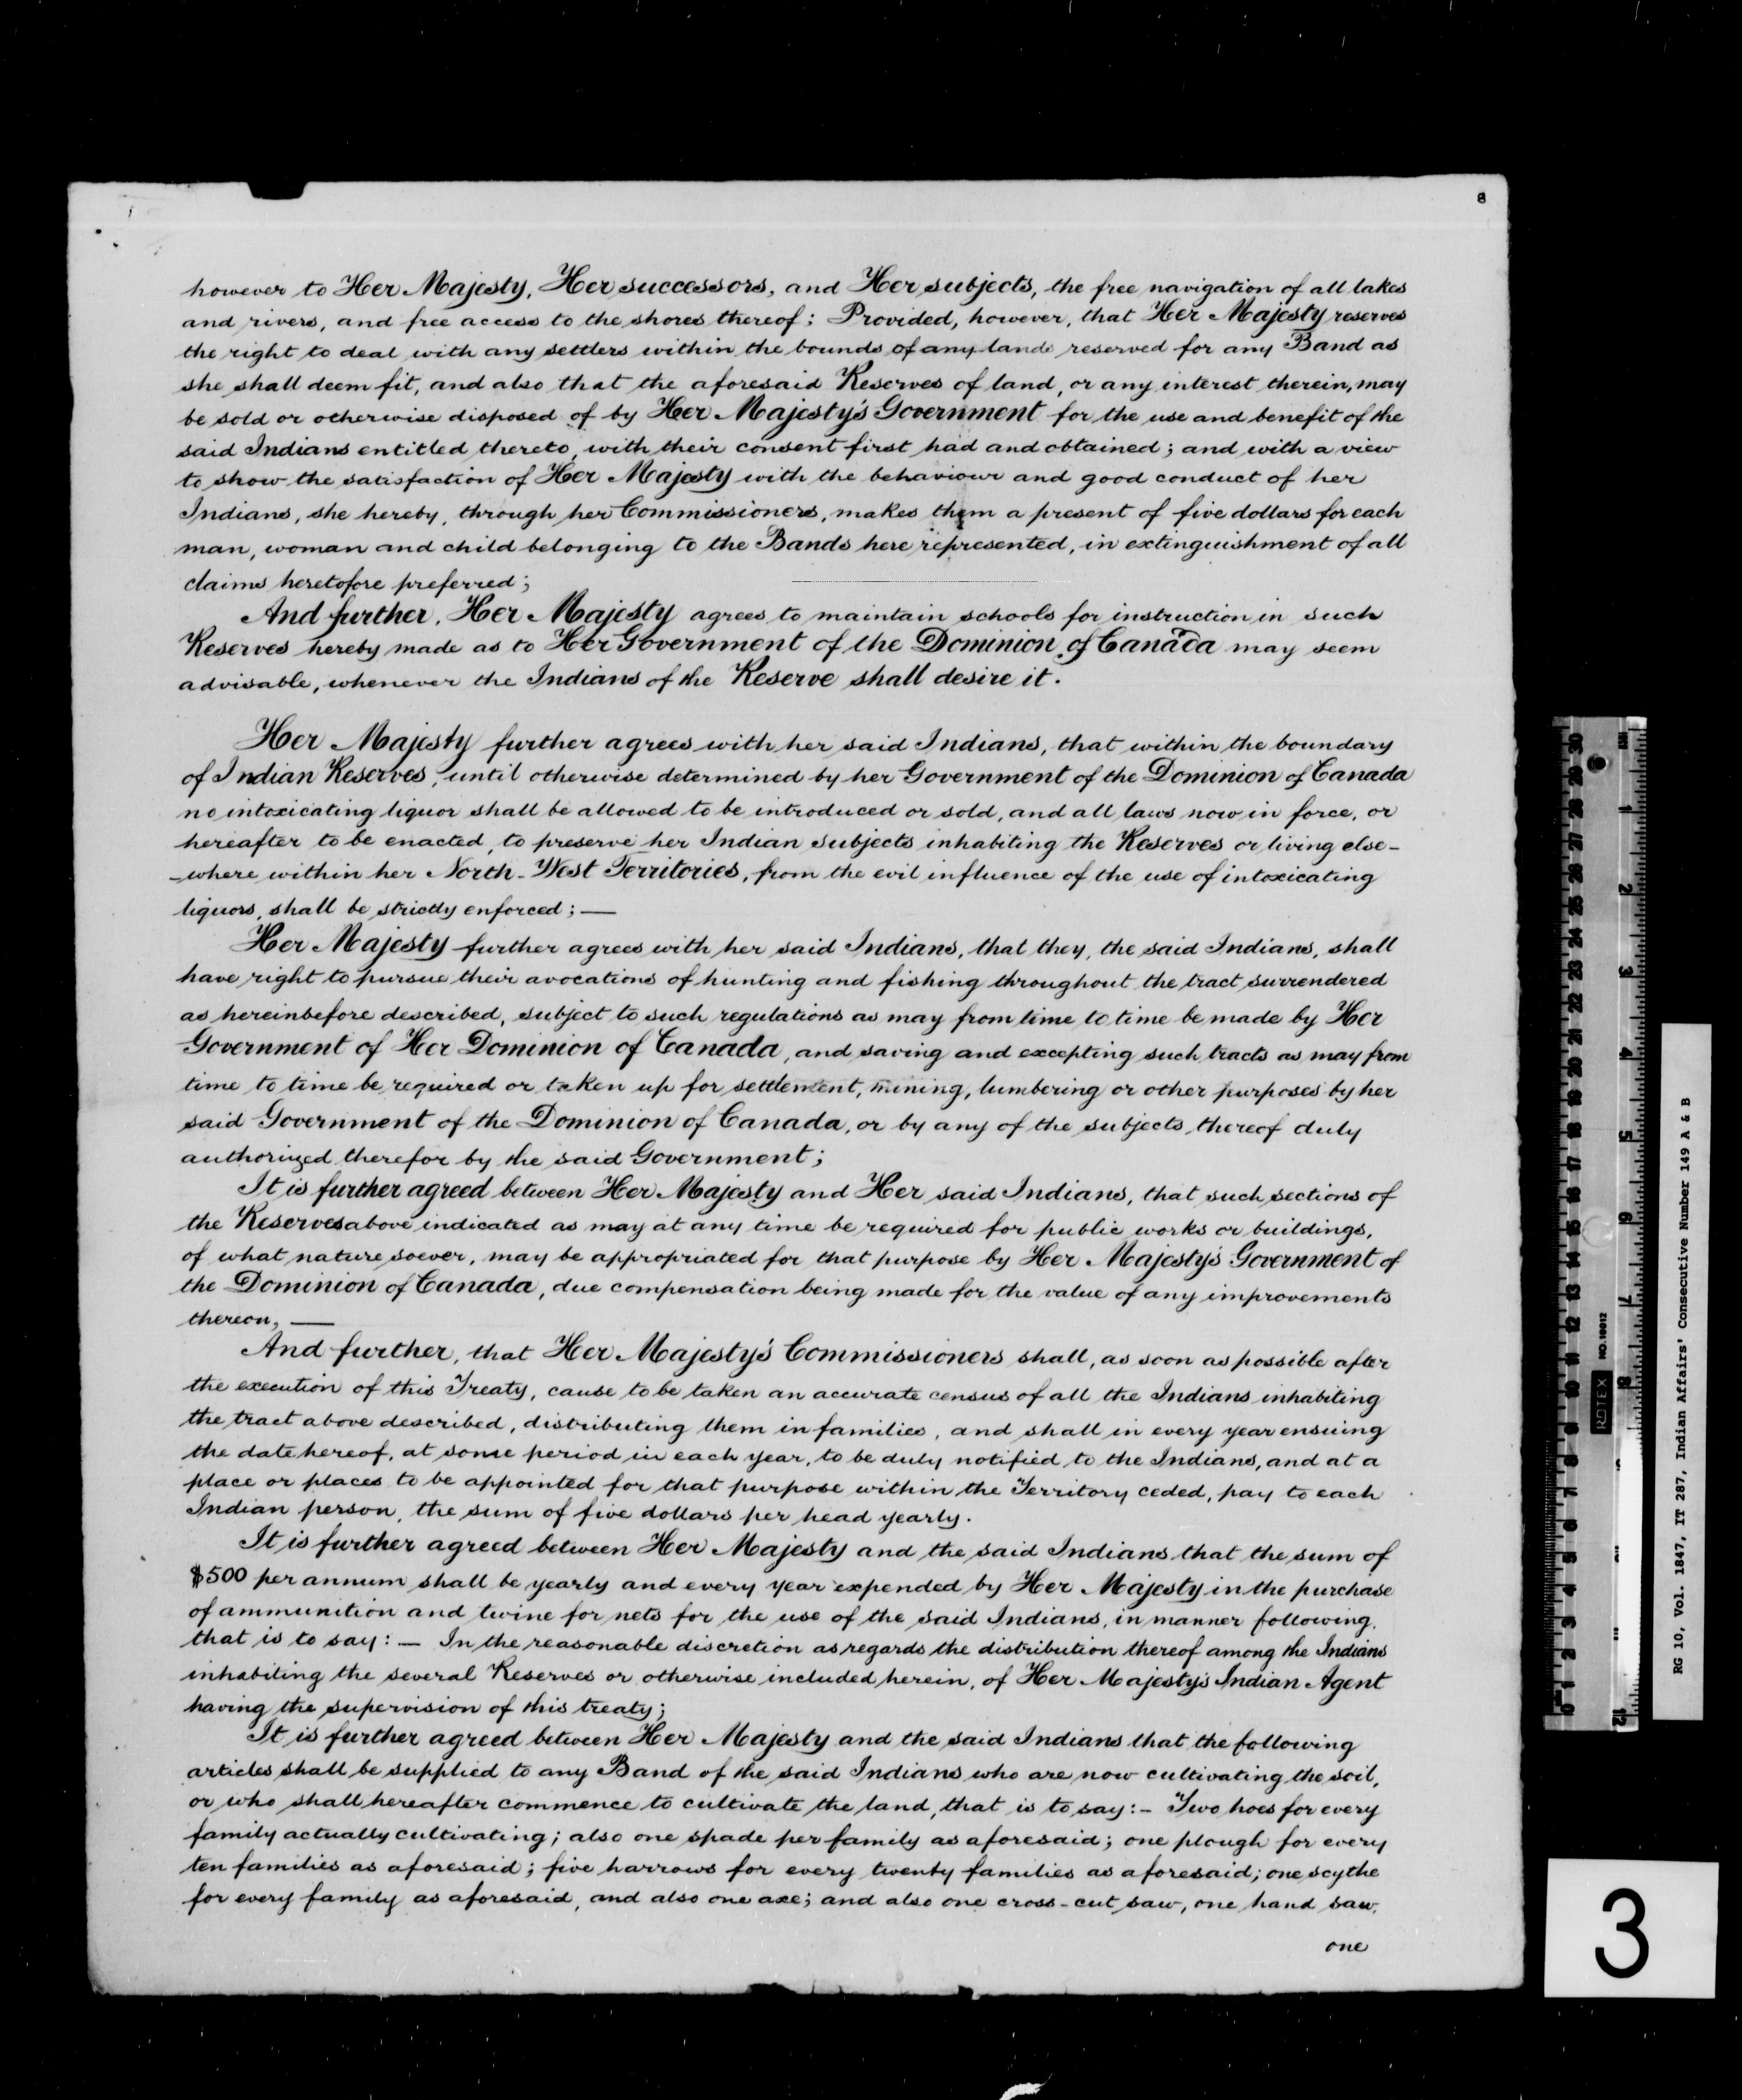 8
however to Her Majesty, Her successors, and Her subjects, the free navigation of all lakes
and rivers, and free access to the shores thereof; Provided, however, that Her Majesty reserves
the right to deal with any settlers within the bounds of any lands reserved for any Band as
she shall deem fit, and also that the aforesaid Reserves of land, or any interest therein, may
be sold or otherwise disposed of by Her Majesty's Government for the use and benefit of the
said Indians entitled thereto, with their consent first had and obtained; and with a view
to show the satisfaction of Her Majesty with the behaviour and good conduct of her
Indians, she hereby, through her Commissioners, makes them a present of five dollars for each
man, woman and child belonging to the Bands here represented, in extinguishment of all
claims heretofore preferred;
And further, Her Majesty agrees to maintain schools for instruction in such
Reserves hereby made as to Her Government of the Dominion of Canada may seem
advisable, whenever the Indians of the Reserve shall desire it.
Her Majesty further agrees with her said Indians, that within the boundary
of Indian Reserves, until otherwise determined by her Government of the Dominion of Canada
no intoxicating liquor shall be allowed to be introduced or sold, and all laws now in force, or
hereafter to be enacted, to preserve her Indian subjects inhabiting the Reserves or living else-
-where within her North-West Territories, from the evil influence of the use of intoxicating
liquors, shall be strictly enforced; —
Her Majesty further agrees with her said Indians, that they, the said Indians, shall
have right to pursue their avocations of hunting and fishing throughout the tract surrendered
as hereinbefore described, subject to such regulations as may from time to time be made by Her
Government of Her Dominion of Canada, and saving and excepting such tracts as may from
time to time be required or taken up for settlement, mining, lumbering or other purposes by her
said Government of the Dominion of Canada, or by any of the subjects thereof duly
authorized therefor by the said Government;
It is further agreed between Her Majesty and Her said Indians, that such sections of
the Reserves above indicated as may at any time be required for public works or buildings,
of what nature soever, may be appropriated for that purpose by Her Majesty's Government of
the Dominion of Canada, due compensation being made for the value of any improvements
thereon, —
And further, that Her Majesty's Commissioners shall, as soon as possible after
the execution of this Treaty, cause to be taken an accurate census of all the Indians inhabiting
the tract above described, distributing them in families, and shall in every year ensuing
the date hereof, at some period in each year, to be duly notified to the Indians, and at a
place or places to be appointed for that purpose within the Territory ceded, pay to each
Indian person, the sum of five dollars per head yearly.
It is further agreed between Her Majesty and the said Indians that the sum of
$500 per annum shall be yearly and every year expended by Her Majesty in the purchase
of ammunition and twine for nets for the use of the said Indians, in manner following,
that is to say: — In the reasonable discretion as regards the distribution thereof among the Indians
inhabiting the several Reserves or otherwise included herein, of Her Majesty's Indian Agent
having the supervision of this treaty;
It is further agreed between Her Majesty and the said Indians that the following
articles shall be supplied to any Band of the said Indians who are now cultivating the soil,
or who shall hereafter commence to cultivate the land, that is to say: - Two hoes for every
family actually cultivating; also one spade per family as aforesaid; one plough for every
ten families as aforesaid; five harrows for every twenty families as aforesaid; one scythe
for every family as aforesaid, and also one axe; and also one cross-cut saw, one hand saw,
one
RG 10, Vol. 1847, IT 287, Indian Affairs' Consecutive Number 149 A & B
ROTEX NO.10012
0 1 2 3 4 5 6 7 8 9 10 11 12 13 14 15 16 17 18 19 20 21 22 23 24 25 26 27 28 29 30
1 2 3 4 5 6 7 8 12
3